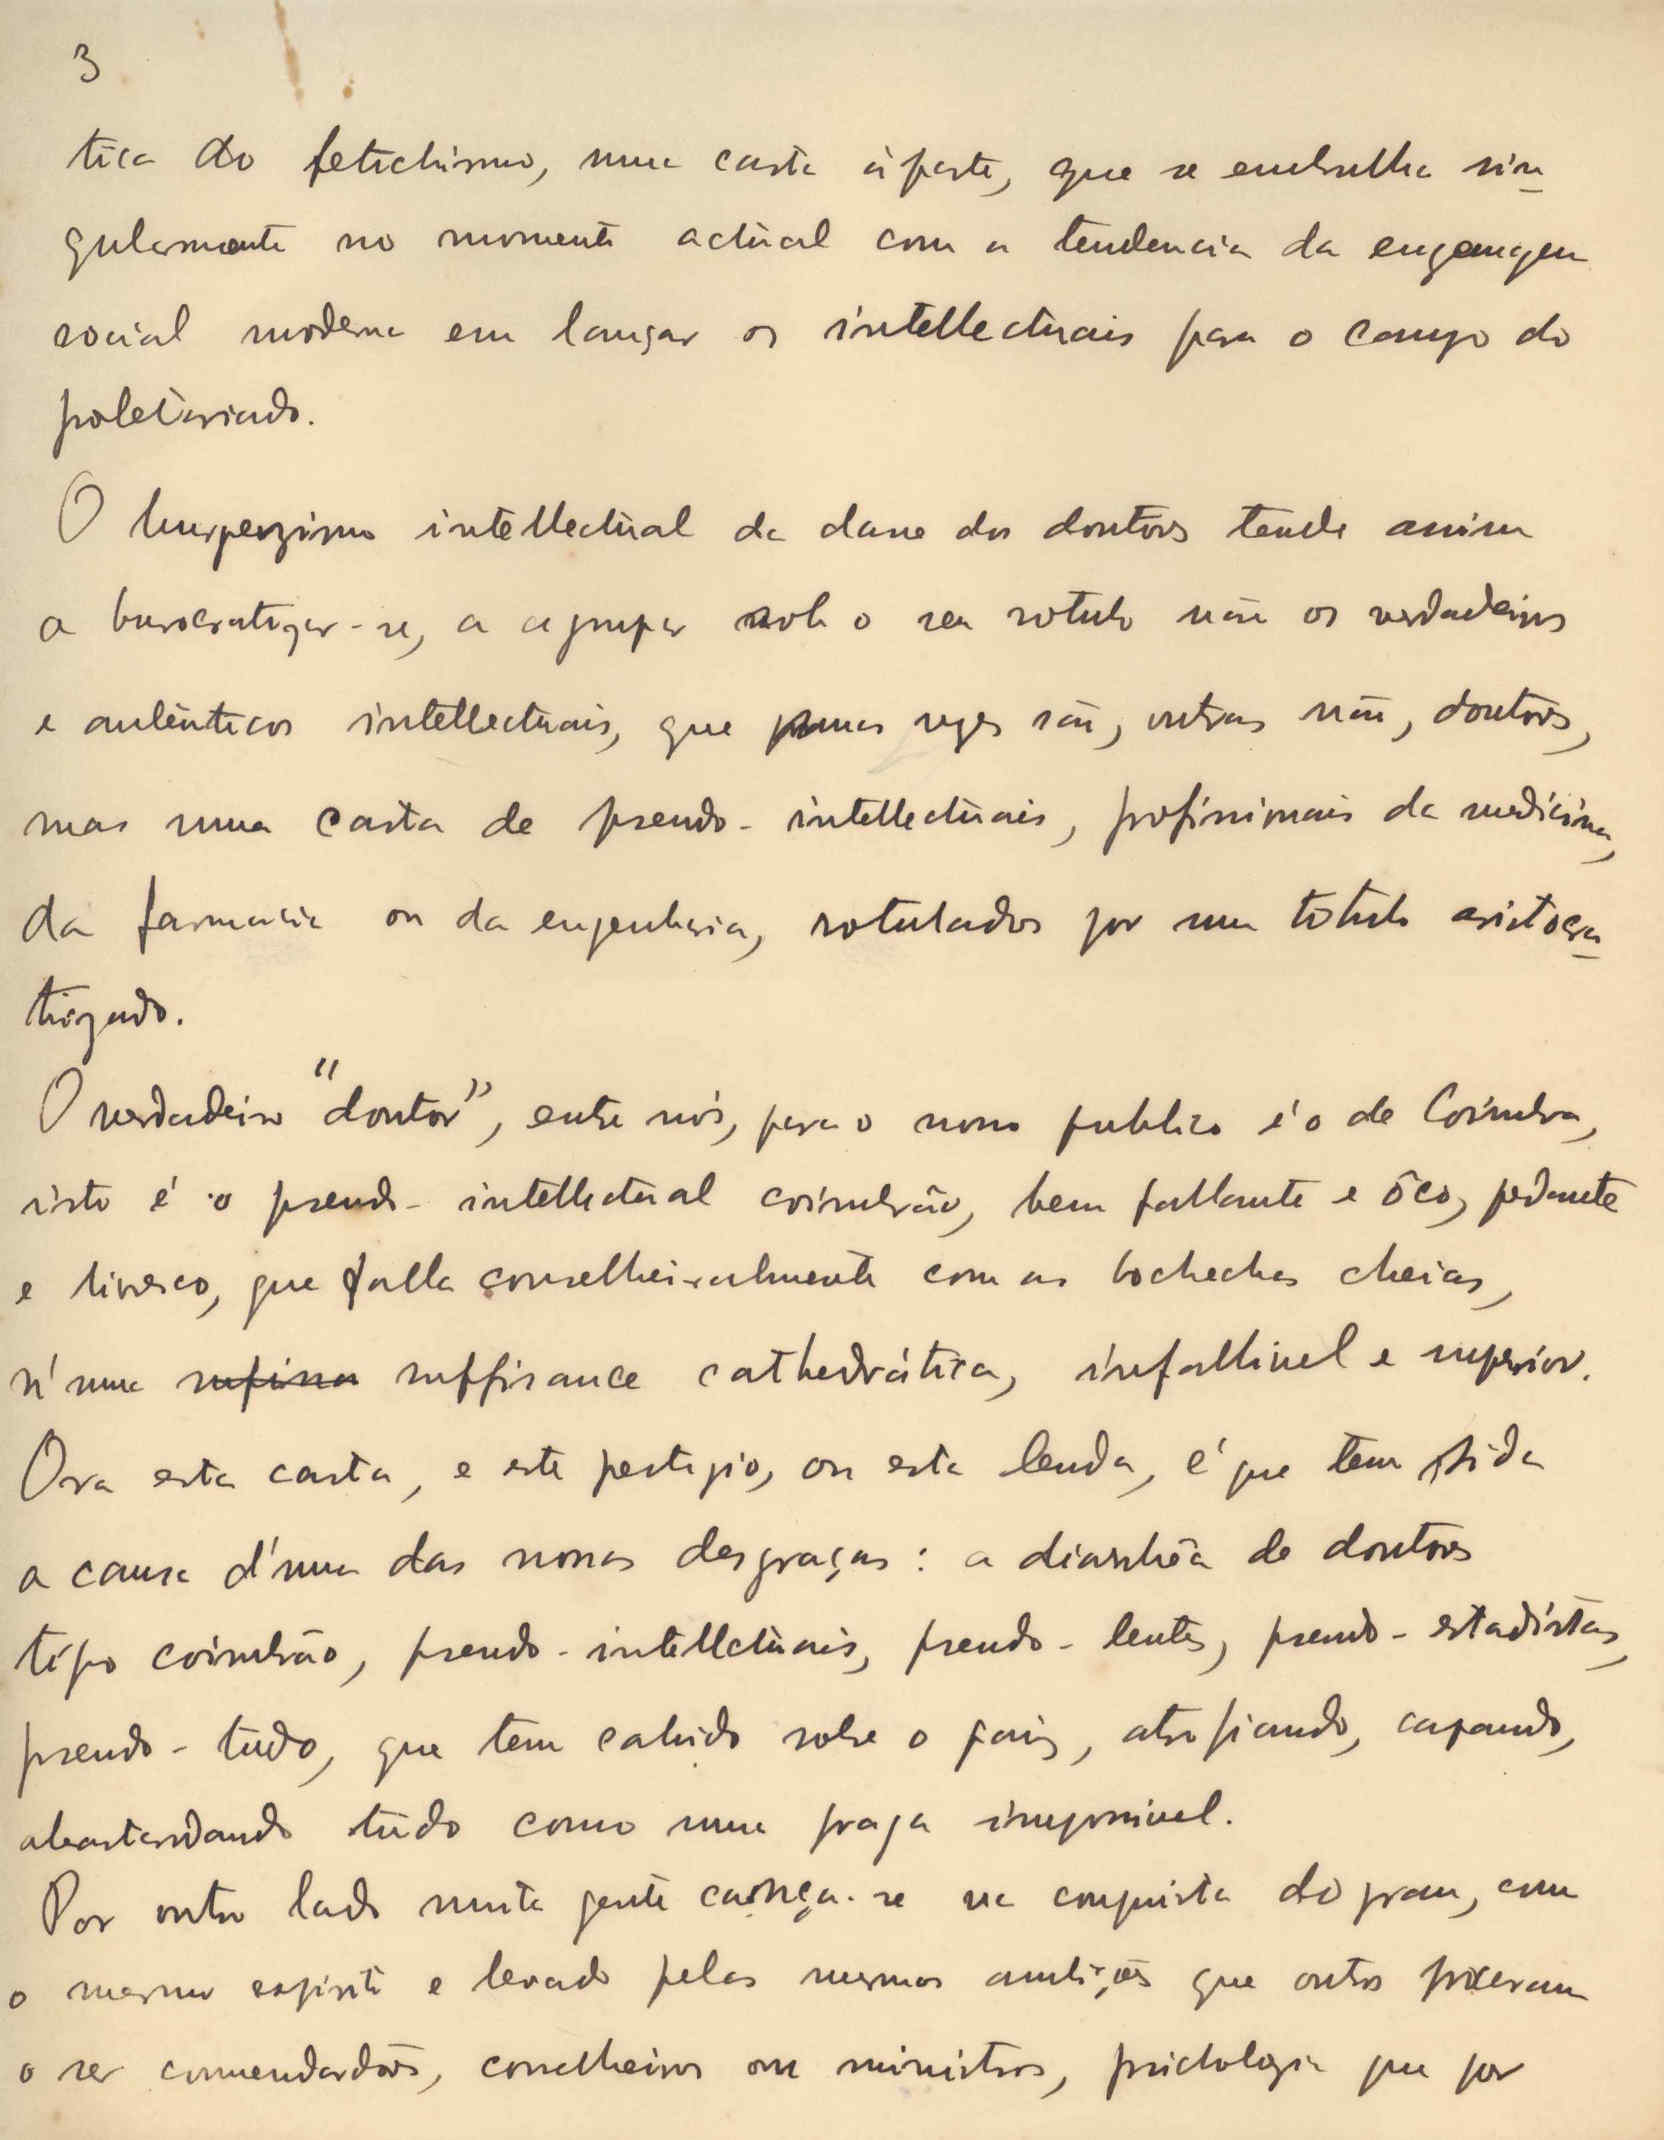 3
tica do fetichismo, uma casta àparte, que se embrulha sin-
gularmente no momento actual com a tendencia da engrenagem
social moderna em lançar os intellectuais para o campo do
proletariado.
O burguezismo intellectual da classe dos doutores tende assim
a burocratizar-se, a agrupar sob o seu rotulo não os verdadeiros
e autênticos intellectuais, que umas vezes são, outras não, doutores,
mas uma casta de pseudo-intellectuais, profissionais da medicina,
da farmacia ou da engenharia, rotulados por um titulo aristocra-
tizado.
O verdadeiro "doutor", entre nós, para o nosso publico é o de Coimbra,
isto é o pseudo-intellectual coimbrão, bem fallante e ôco, pedante
e livresco, que falla conselheiralmente com as bochechas cheias,
n'uma sufisan suffisance cathedrática, infallivel e superior.
Ora esta casta, e este prestigio, ou esta lenda, é que tem sido
a causa d'uma das nossas desgraças: a diarrhêa de doutores
tipo coimbrão, pseudo-intellctuais, pseudo-lentes, pseudo-estadistas,
pseudo-tudo, que tem cahido sobre o paiz, atrofiando, capando,
abastardando tudo como uma praga impossivel.
Por outro lado muita gente cança-se na conquista do grau, com
o mesmo espirito e levado pelas mesmas ambições que outros fizeram
o ser comendadores, conselheiros ou ministros, psichologia que por